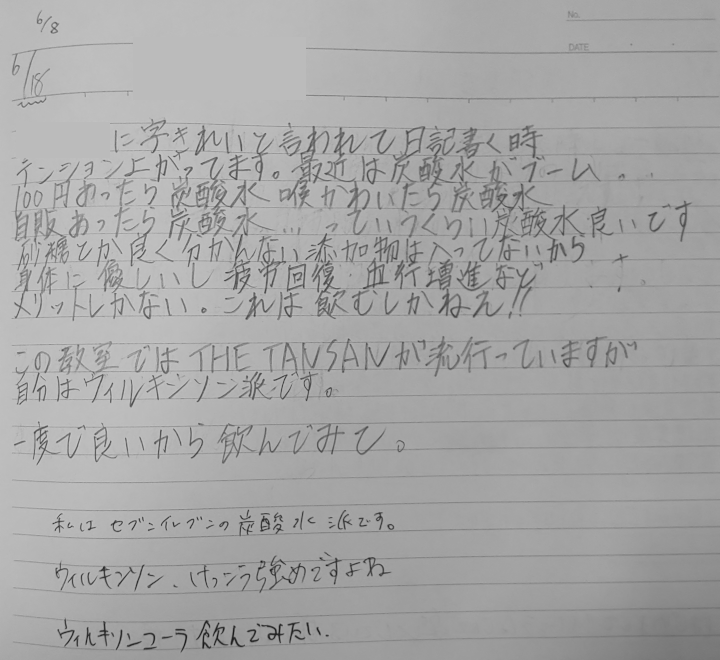 6/8
No.
DATE
6/18
に字きれいと言われて日記書く時
テンション上がってます。最近は炭酸水がブーム..
100円あったら炭酸水 喉かわいたら炭酸水
自販あったら炭酸水...っていうくらい炭酸水良いです
砂糖とか良く分かんない添加物は入ってないから
身体に優しいし疲労回復 血行増進など
メリットしかない。これは飲むしかねえ!!
この教室では THE TANSANが流行っていますが
自分はウィルキンソン派です。
一度で良いから飲んでみて。
私は セブンイレブンの炭酸水派です。
ウィルキンソン、けっこう強めですよね
ウィルキソンコーラ飲んでみたい.